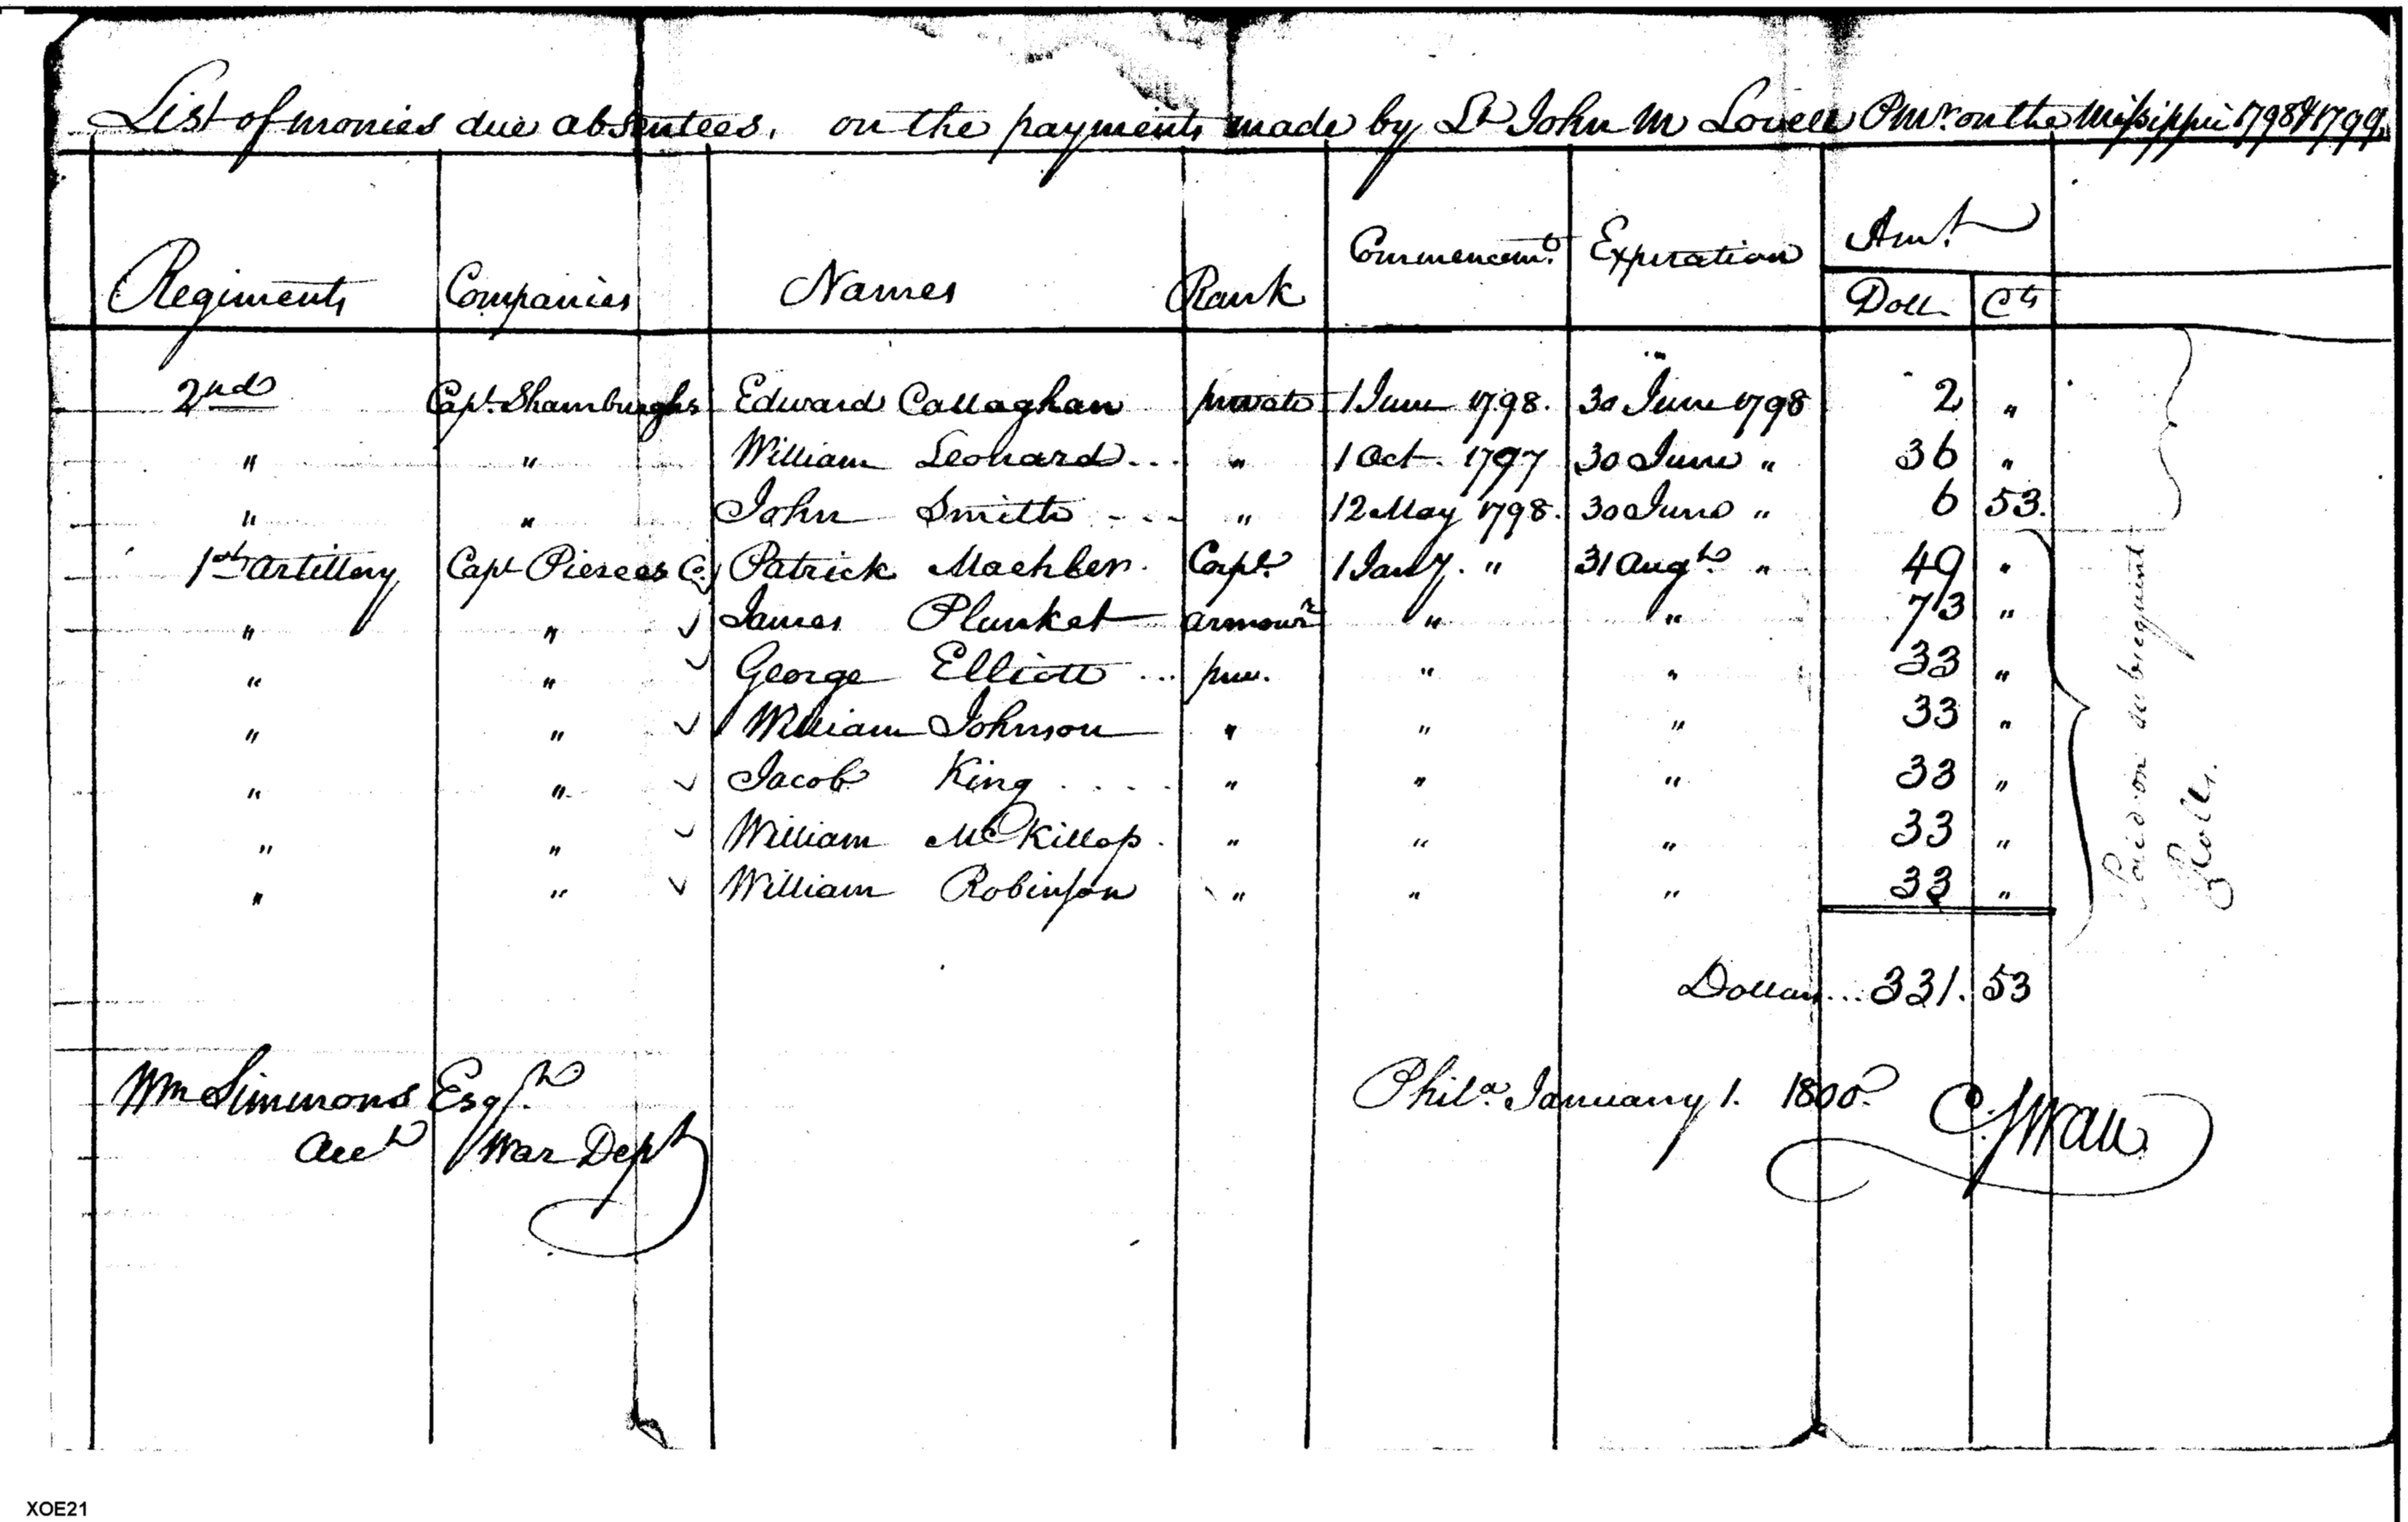 List of monies due absentees. on the payments made by Lt John M Lovell PMr. on the Missisippi 1798 & 1799.
Regiments Companies Names Rank Commencemt. Expiration Amt.
Doll Cts
2nd Capt. Shamburghs Edward Callaghan private 1 June 1798. 30 June 1798 2 "
" " William Leonard... " 1 Oct. 1797 30 June " 36 "
" " John Smith --- " 12 May 1798. 30 June " 6 53.
1st Artillery Capt Pierces Co. Patrick Corpl. 1 Jany. " 31 Augt. " 49 "
" " ✓ James Plunket armourr " " 73 "
" " ✓ George Elliott ... priv. " " 33 "
" " ✓ William Johnson " " " 33 "
" " ✓ Jacob King .... " " " 33 "
" " ✓ William McKillop. " " " 33 "
" " ✓ William Robinson " " " 33 "
Paid on subsequent
Rolls.
Dollars... 331. 53
Wm Simmons Esqr.
Acct War Dept
Phila. January 1. 1800.
C. Swan
XOE21